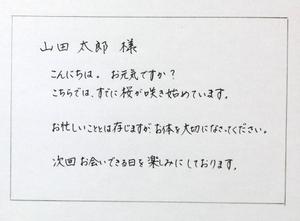 山田 太郎 様
こんにちは。お元気ですか？
こちらでは、すでに桜が咲き始めています。
お忙しいこととは存じますが、お体を大切になさってください。
次回お会いできる日を楽しみにしております。